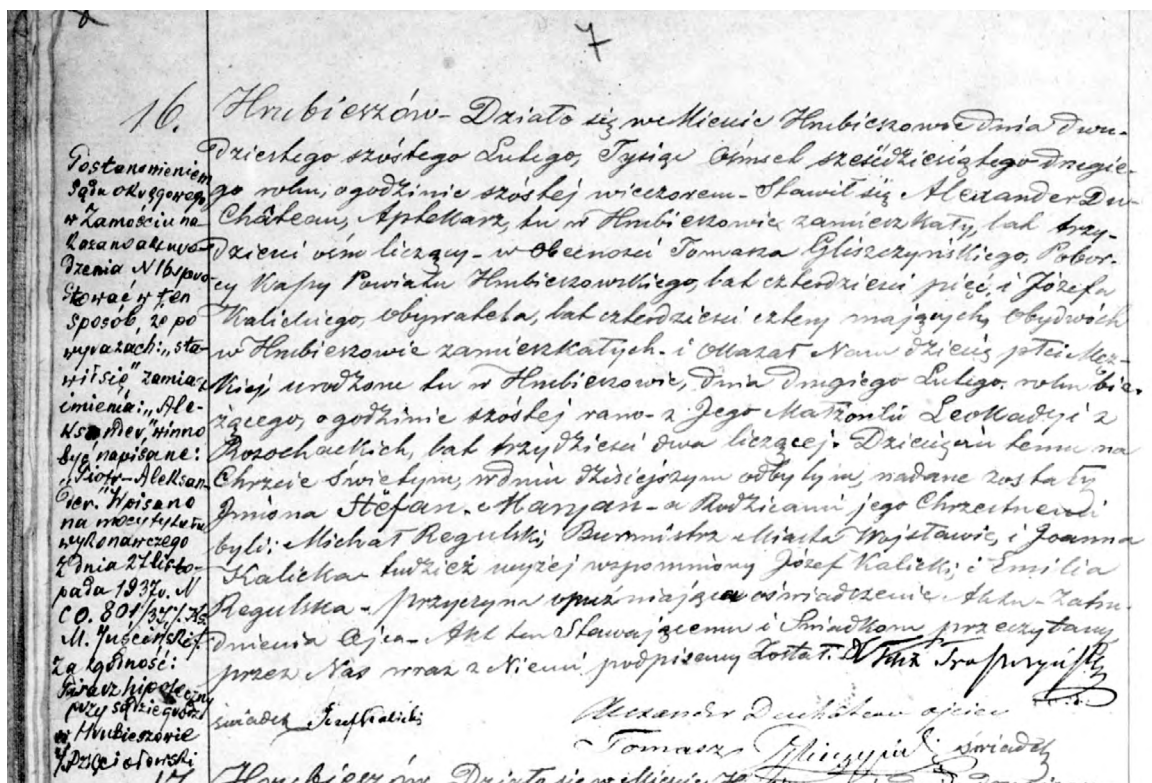 7
16.
Postanowieniem
Sądu Okręgowego
w Zamościu na
kazano akt uro-
dzenia N 16 spro
stować w ten
sposób, że po
wyrazach: „sta-
wił się” zamiast
imienia: „Ale-
ksander”, winno
być napisane:
„Piotr-Aleksan
der.” Wpisano
na mocy tytułu
wykonawczego
z dnia 27 listo-
pada 1937 r. N
CO. 801/37.
Za zgodność:
Pisarz hipoteczny
przy Sądzie
w Hrubieszowie
Hrubieszów - Działo się w Mieście Hrubieszowie dnia dwu-
dziestego szóstego Lutego, Tysiąc Ośmset sześćdziesiątego drugie-
go roku, o godzinie szóstej wieczorem - Stawił się Alexander Du-
Château, Aptekarz, tu w Hrubieszowie zamieszkały, lat trzy-
dzieści ośm liczący - w obecności Tomasza Gliszczyńskiego, Pobor-
cy Kassy Powiatu Hrubieszowskiego, lat czterdzieści pięć, i Józefa
Kalickiego, obywatela, lat czterdzieści cztery mających, Obydwóch
w Hrubieszowie zamieszkałych - i Okazał Nam dziecię płci Mez-
kiej urodzone tu w Hrubieszowie, dnia drugiego Lutego, roku bie-
żącego, o godzinie szóstej rano - z Jego Małżonki Leokadyi z
Rozochackich, lat trzydzieści dwa liczącej. Dziecięciu temu na
Chrzcie Świętym, w dniu dzisiejszym odbytym, nadane zostały
Imiona Stefan - Maryan - a Rodzicami jego Chrzestnemi
byli: Michał Regulski, Burmistrz Miasta Wojsławic, i Joanna
Kalicka - tudzież wyżej wspomniony Józef Kalicki, i Emilia
Regulska - przyczyna opuźniająca oświadczenie Aktu - Zatru-
dnienia Ojca - Akt ten Stawającemu i Świadkom przeczytany
przez Nas wraz z Niemi podpisany Został.
świadek Józef Kalicki
Alexander Duchateau ojciec
Tomasz Gliszczyński świadek
17. Hrubieszów Działo się w Mieście